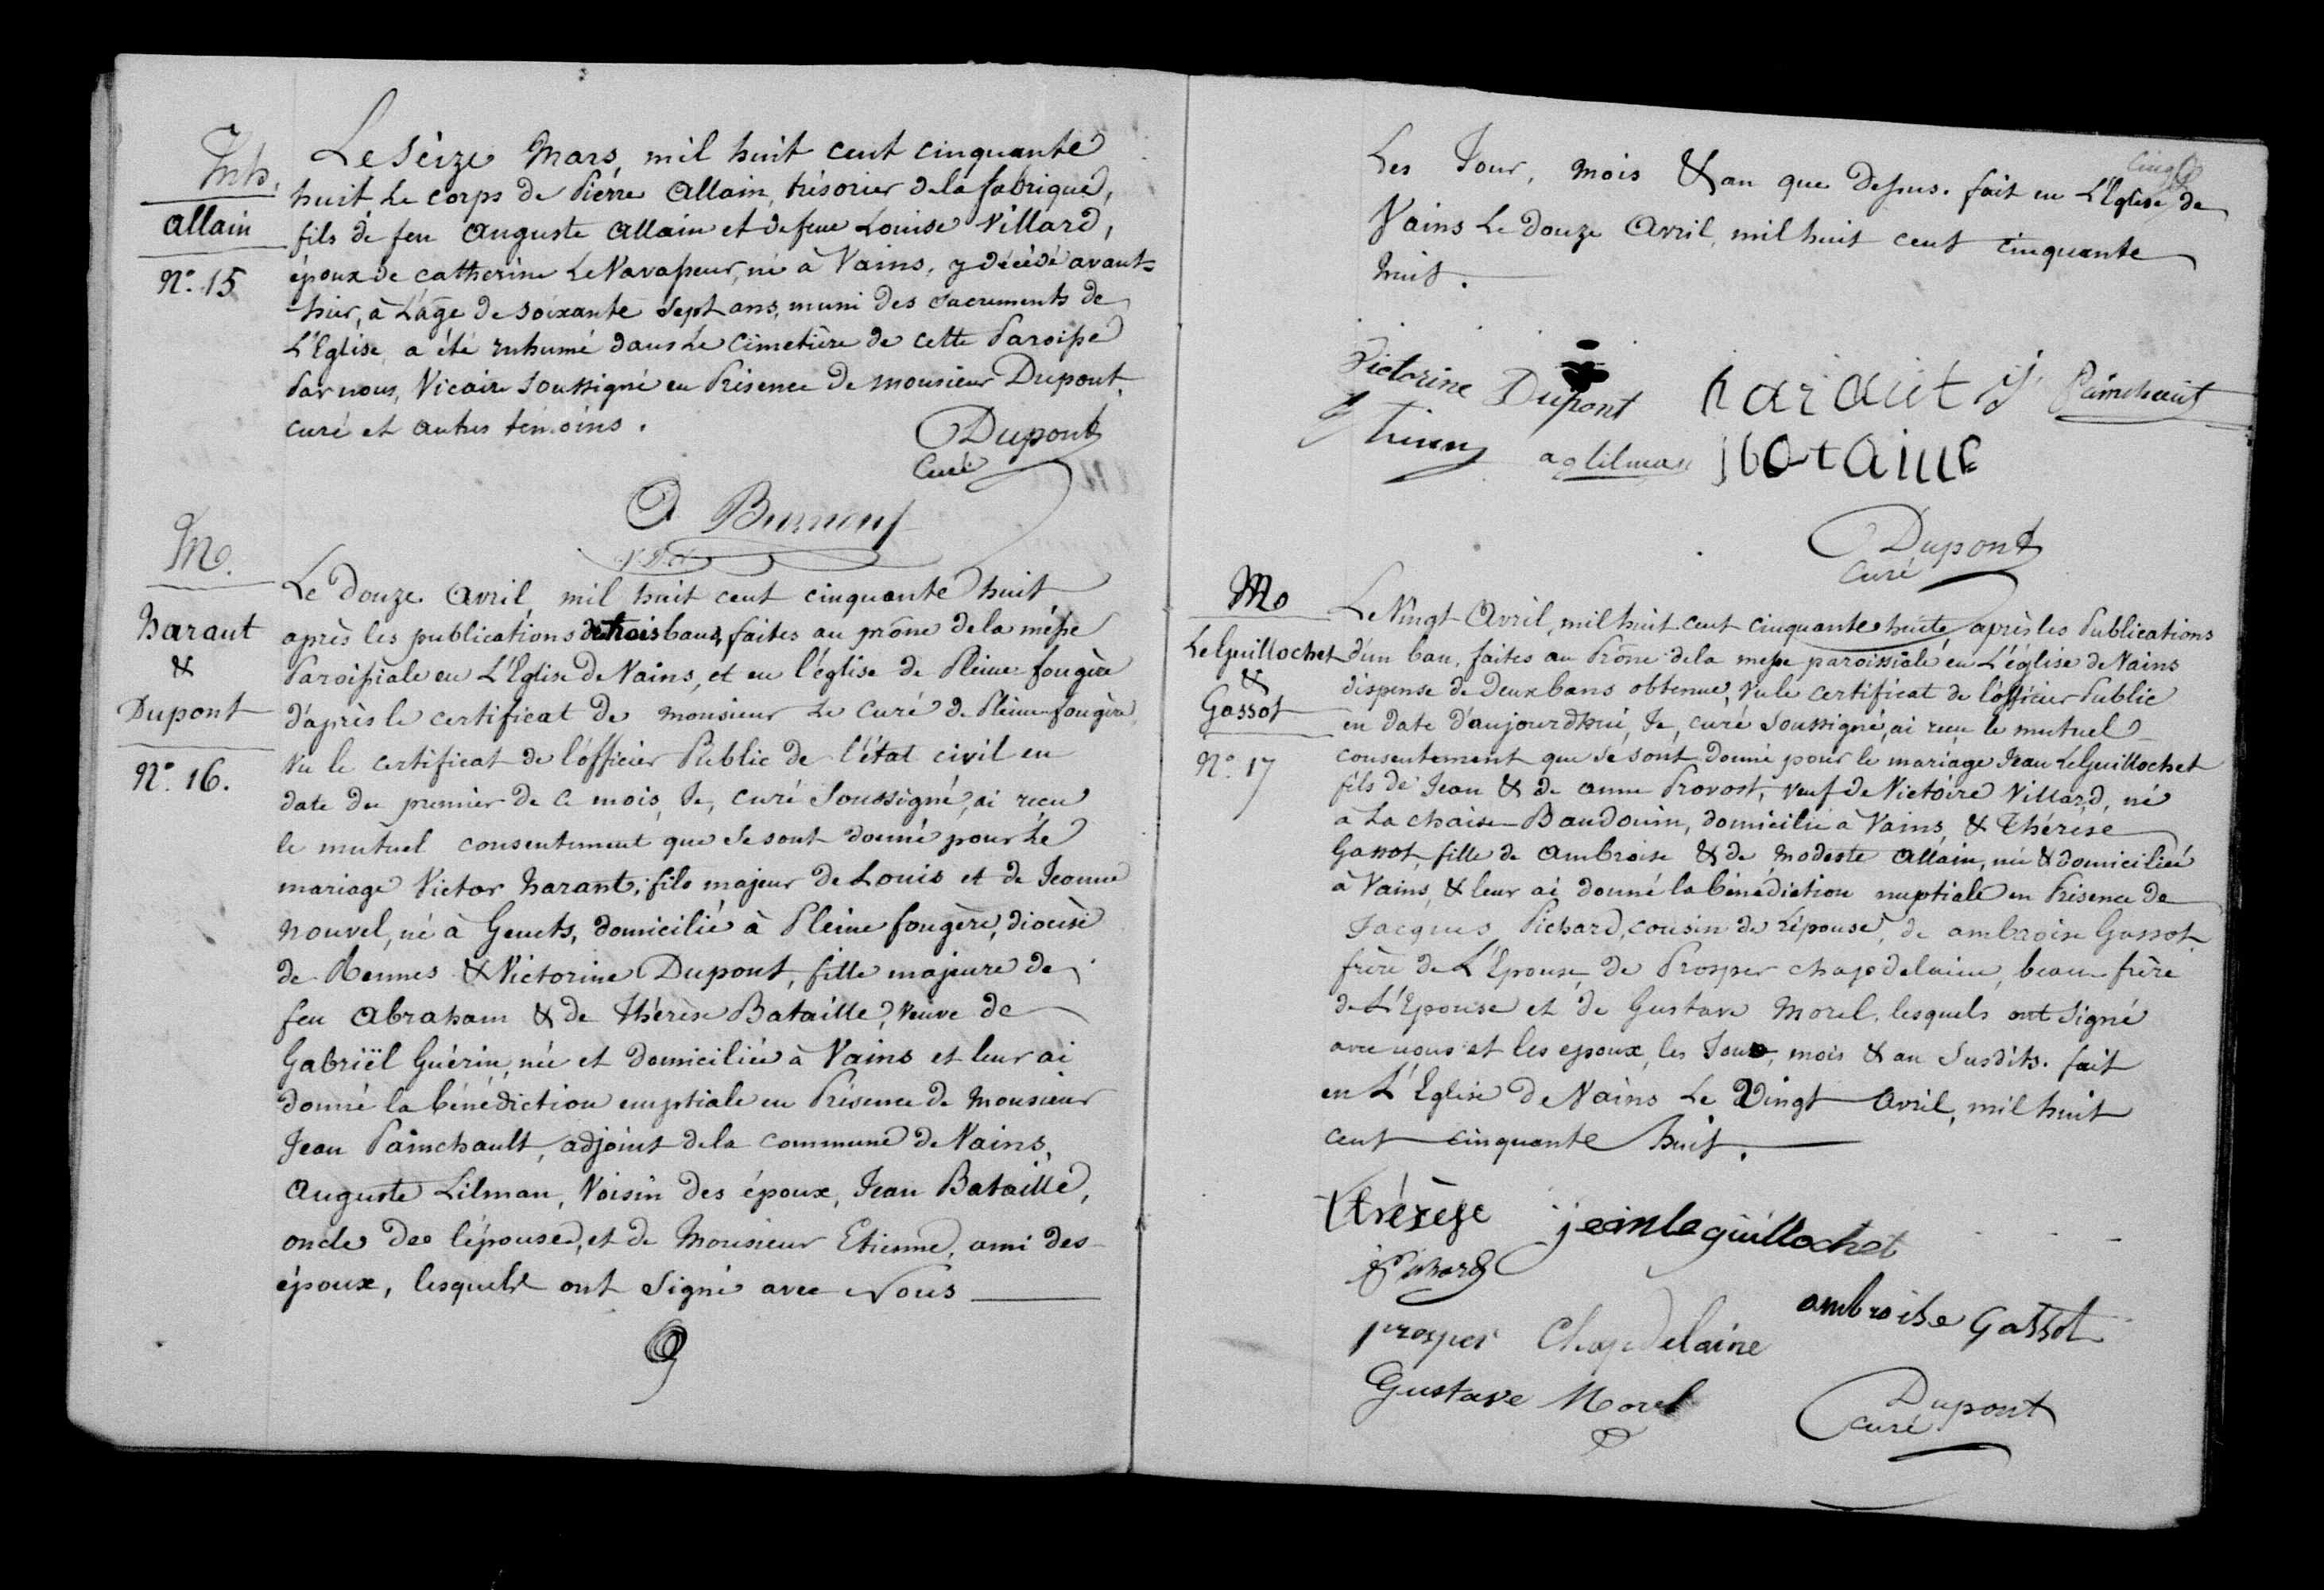 Inh.
Allain
N° 15
Le Seize Mars, mil huit cent cinquante
huit Le corps de Pierre Allain, trésorier de la fabrique,
fils de feu Auguste Allain et de feue Louise Villard,
époux de Catherine LeVavasseur, né à Vains, y décédé avant-
hier, à L'âge de soixante Sept ans, muni des Sacrements de
L'Eglise, a été inhumé dans Le Cimetière de cette Paroisse
Par nous, Vicaire Soussigné en Présence de monsieur Dupont,
curé et autres témoins.
Dupont
Curé
Burnouf
M.
harant
&
Dupont
N° 16.
Le Douze Avril, mil huit cent cinquante huit
après les publications de trois bans, faites au prône de la messe
Paroissiale en L'Eglise de Vains, et en l'église de Pleine-fougère
d'après le certificat de monsieur Le Curé de Pleine-fougère,
Vu le certificat de l'officier Public de l'état civil en
date du premier de ce mois, Je, curé Soussigné, ai reçu
le mutuel consentement que Se sont donné pour Le
mariage Victor harant, fils majeur de Louis et de Jeanne
nouvel, né à Genets, domicilié à Pleine fougère, diocèse
de Rennes & Victorine Dupont, fille majeure de
feu Abraham & de Thérèse Bataille, Veuve de
Gabriël Guérin, née et domiciliée à Vains et leur ai
donné la bénédiction nuptiale en Présence de Monsieur
Jean Painchault, adjoint de la commune de Vains,
Auguste Lilman, Voisin des époux, Jean Bataille,
oncle de l'épouse, et de Monsieur Etienne, ami des
époux, lesquels ont Signé avec Nous
Les Jour, mois & an que Dessus. fait en L'Eglise de
Vains Le Douze Avril, mil huit cent cinquante
huit.
Victorine Dupont harant Painchault
aglilman
Dupont
Curé
M.
LeGuillochet
&
Gassot
N° 17
Le Vingt Avril, mil huit cent cinquante huit, après les Publications
d'un ban, faites au Prône de la messe paroissiale en L'église de Vains
dispense de Deux bans obtenue, Vu le certificat de l'officier Public
en date d'aujourdhui, Je, curé Soussigné, ai reçu le mutuel
consentement que Se sont donné pour le mariage Jean LeGuillochet
fils de Jean & de anne Provost, Veuf de Victoire Villard, né
à La chaise-Baudouin, domicilié à Vains, & Thérèse
Gassot, fille de Ambroise & de Modeste Allain, née & domiciliée
à Vains, & leur ai donné la bénédiction nuptiale en Présence de
Jacques Pichard, cousin de l'épouse, de ambroise Gassot
frère de L'Epouse, de Prosper chapdelaine, beau-frère
de L'Epouse et de Gustave Morel, lesquels ont Signé
avec nous et les epoux, les Jour, mois & an Susdits. fait
en L'Eglise de Vains Le Vingt Avril, mil huit
cent cinquante huit.
thérèse jeanleguillochet
ambroise Gassot
prosper Chapdelaine
Gustave Morel
Dupont
curé